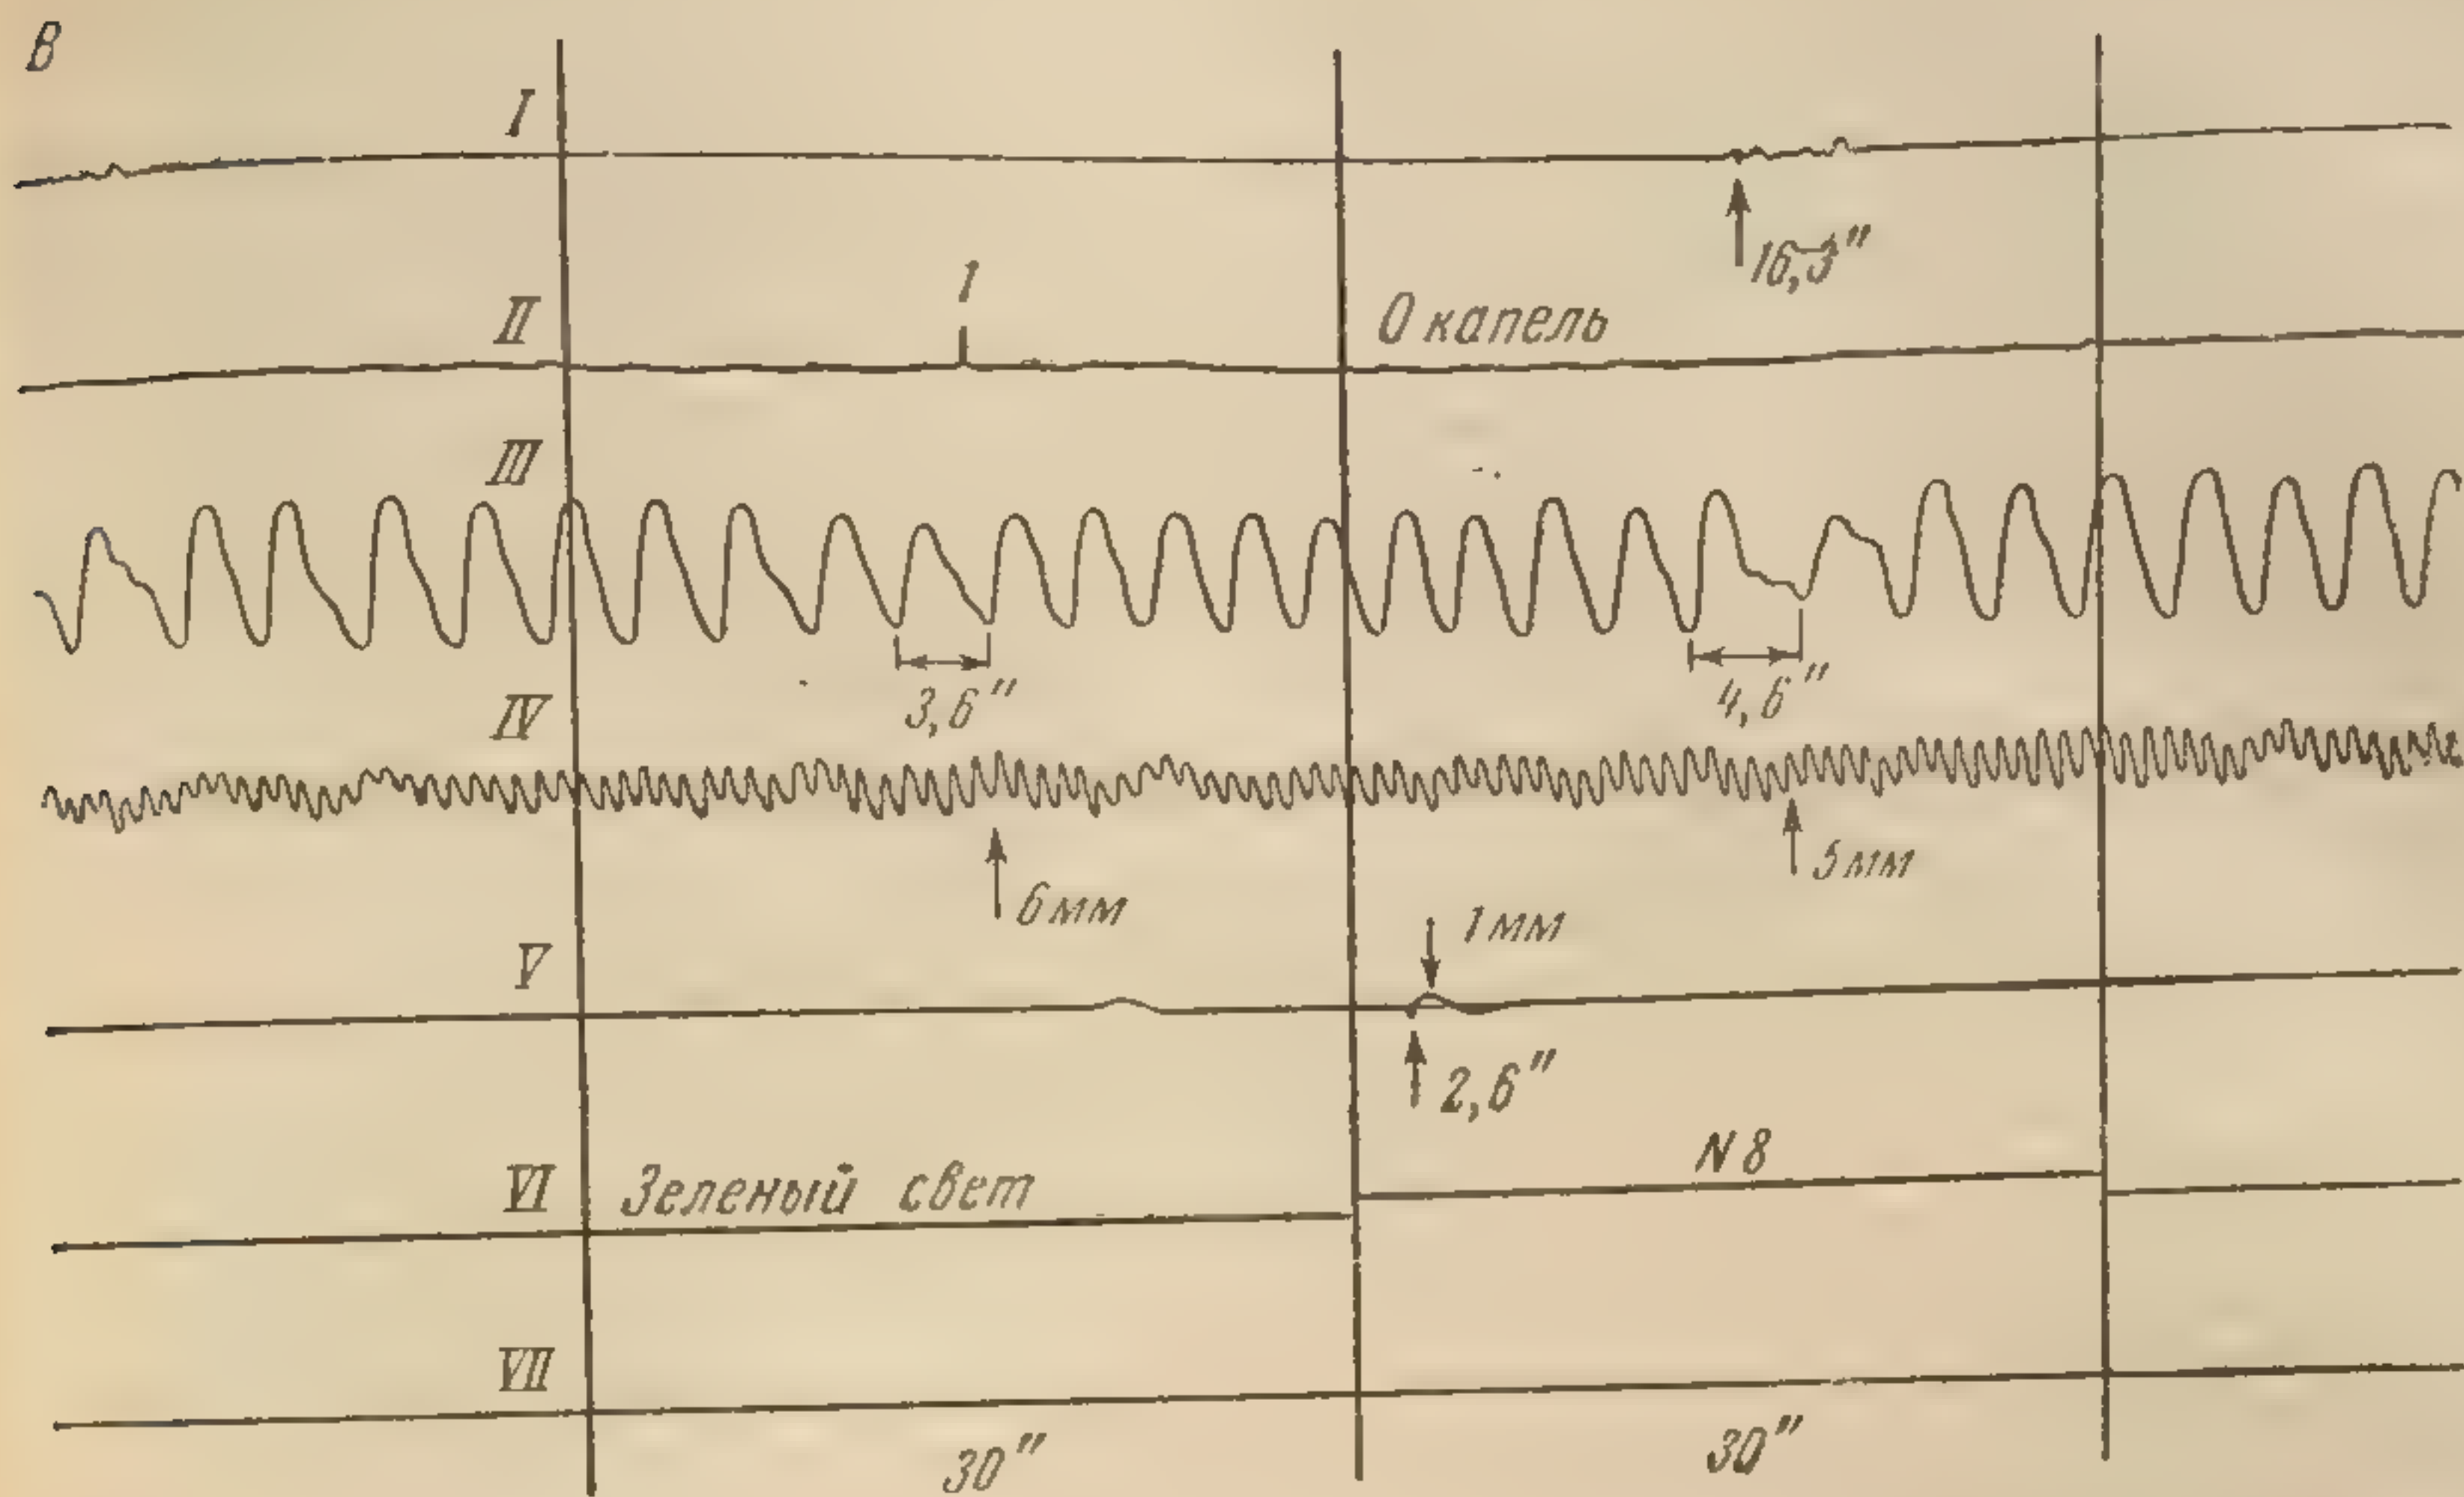 В
I
16,3"
1
II
0 капель
III
3,6"
4,6"
IV
6 мм
5 мм
1 мм
V
2,6"
N 8
VI Зеленый свет
VII
30"
30"